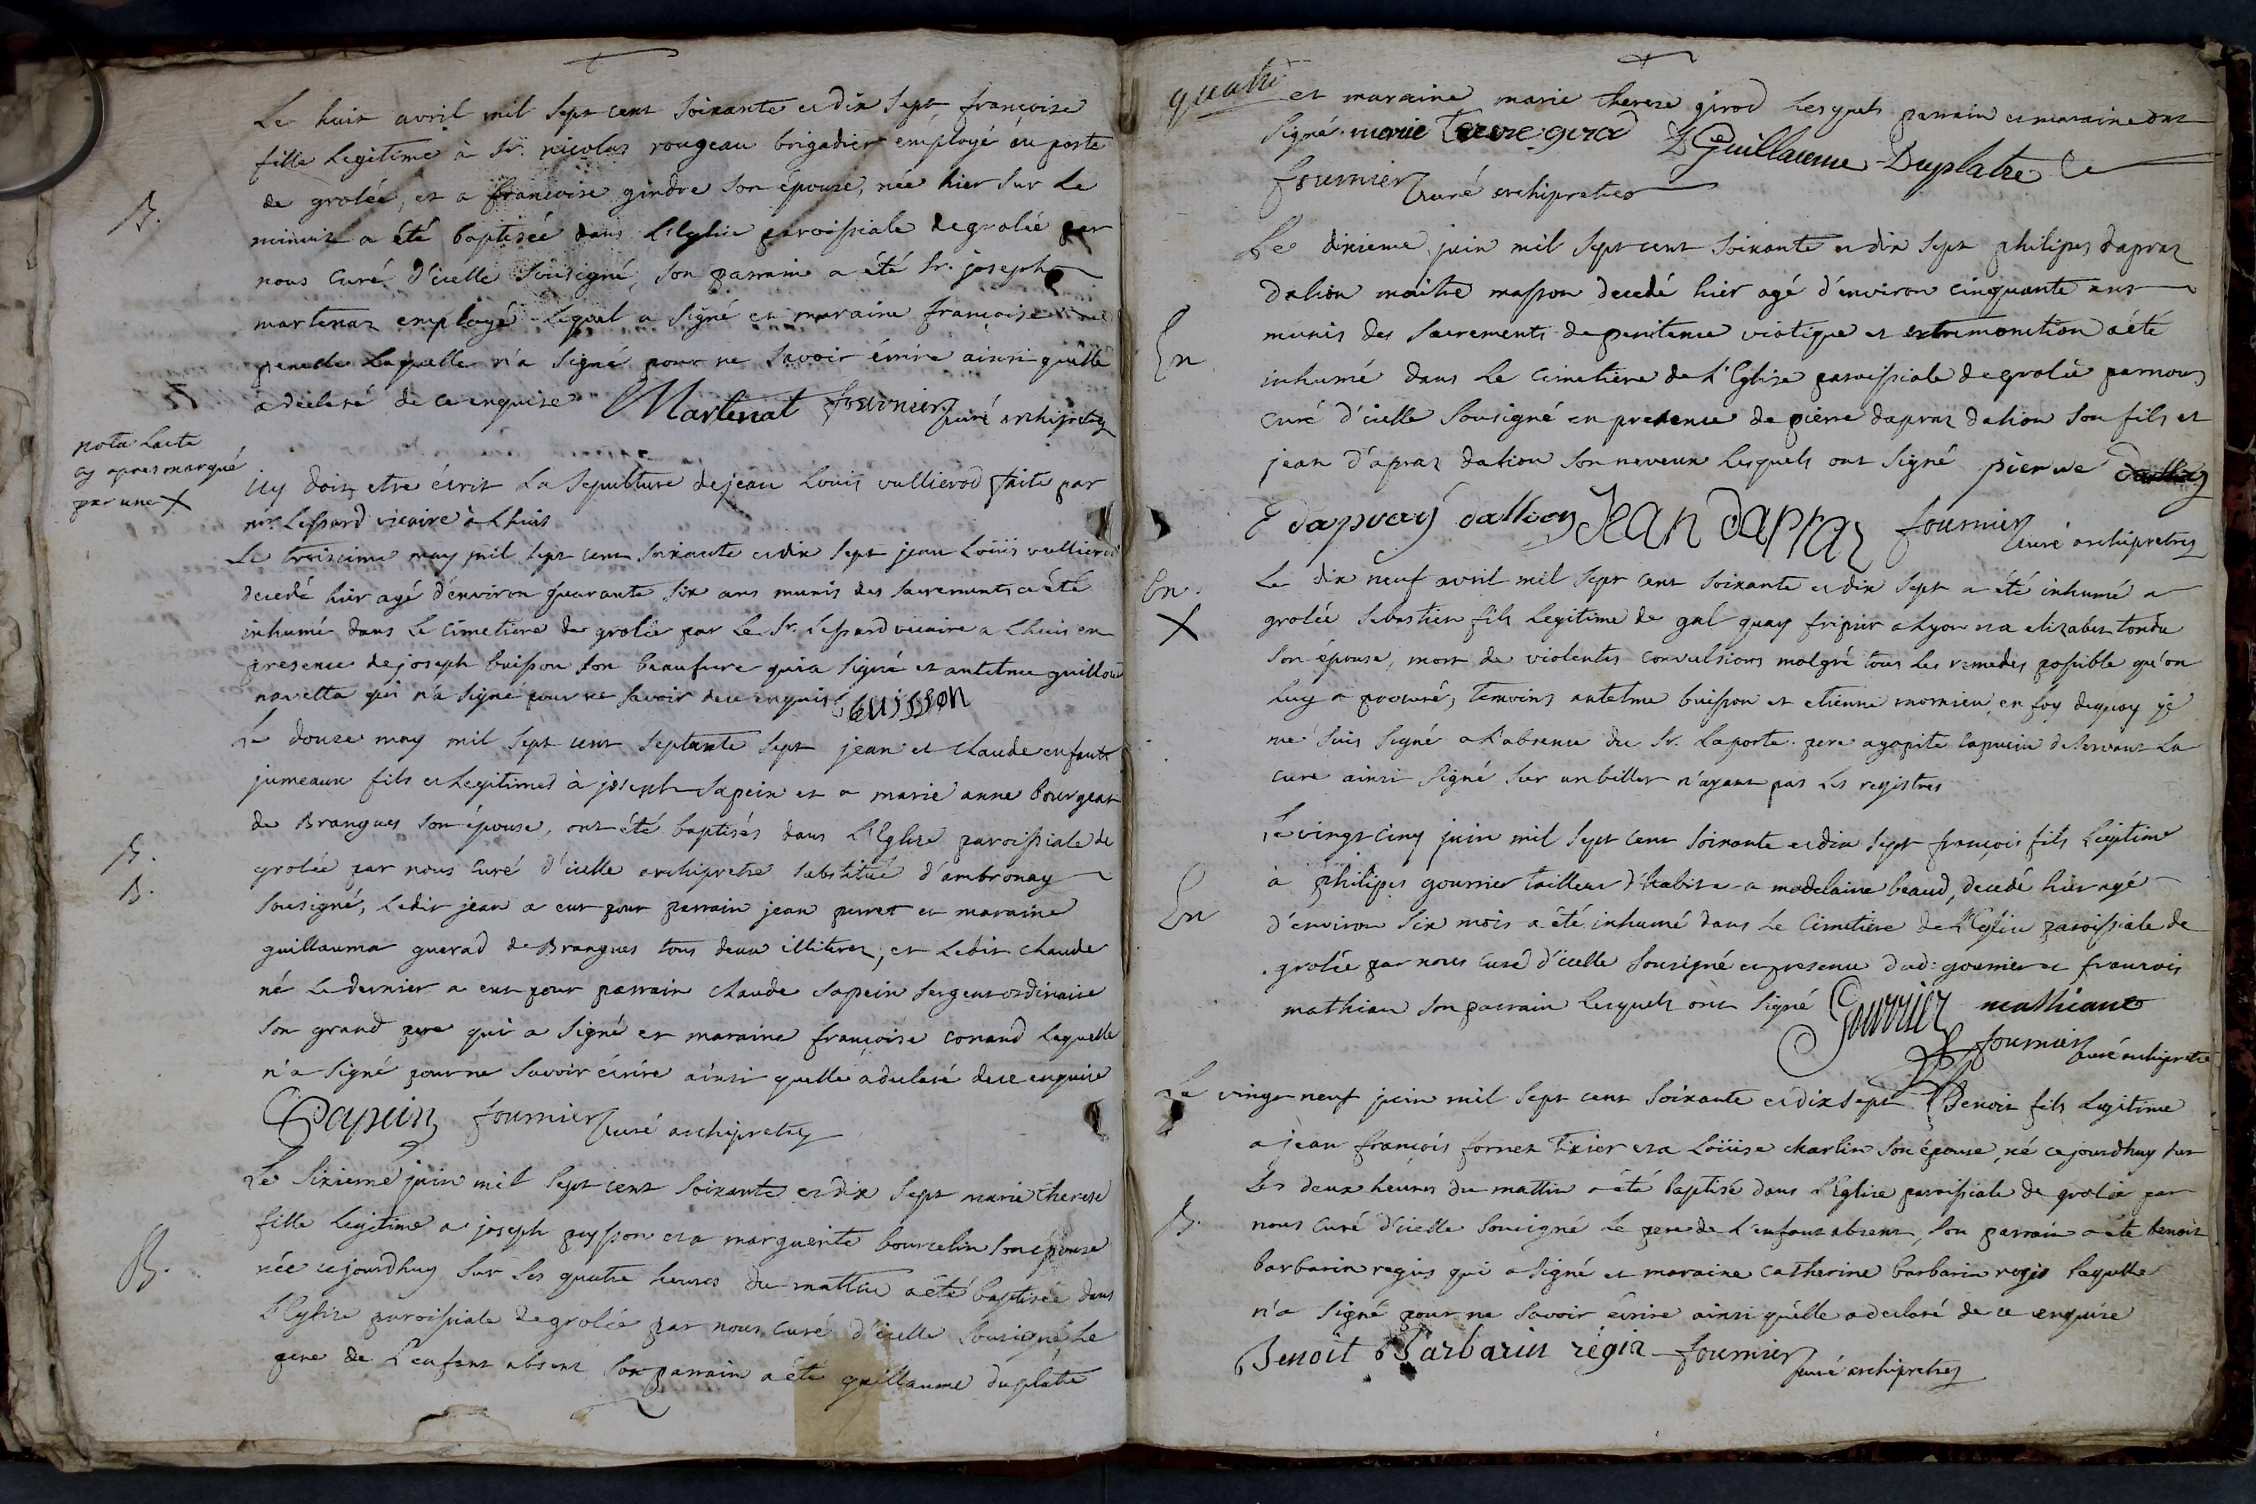 B.
Le huit avril mil sept cent soixante et dix sept françoise
fille legitime à Sr. nicolas rougeau brigadier employé au poste
de grolée, et a francoise gindre son épouse, née hier sur le
minuit a été baptisée dans l'Eglise paroissiale de grolée par
nous curé d'icelle sousigné, son parrain a été Sr. joseph
martenat employé lequel a signé et maraine francoise
laquelle n'a signé pour ne savoir écrire ainsi quelle
a declaré de ce enquise Martenat fournier curé archipretre
nota lacte
cy apres marqué
par une X
icy doit etre écrit la sepulture de jean Louis vullierod faite par
mr. Lessard vicaire à Lhuis
Le troisieme may mil sept cent soixante et dix sept jean Loüis vullierod
decedé hier agé d'environ quarante six ans munis des sacrements a été
inhumé dans le cimetiere de grolée par le Sr. Lessard vicaire a Lhuis en
presence de joseph buisson son beaufrere qui a signé et antelme guillou
navetta qui n'a signé pour ne savoir de ce enquis buisson
B.
B.
Le douze may mil sept cent septante sept jean et claude enfants
jumeaux fils et legitimes à joseph sapein et a marie anne bourgeat
de Brangues son épouse, ont été baptisés dans l'Eglise paroissiale de
grolée par nous curé d'icelle archipretre substitué d'ambronay
sousigné, ledit jean a eut pour parrain jean perret et maraine
guillauma guerad de Brangues tous deux illiteres, et ledit claude
né le dernier a eut pour parrain claude sapein sergent ordinaire
son grand pere qui a signé et maraine françoise conand laquelle
n'a signé pour ne savoir écrire ainsi quelle a declaré de ce enquise
Sapein fournier curé archipretre
B.
Le sixieme juin mil sept cent soixante et dix sept marie therese
fille legitime a joseph puysson et a marguerite bourcelin son épouse
née cejourdhuy sur les quatre heures du mattin a été baptisée dans
l'Eglise paroissiale de grolée par nous curé d'icelle sousigné, le
pere de l'enfant absent son parrain a été guillaume duplatre
quatre
et maraine marie therese girod lesquels parrain et maraine ont
signé marie terese girod Guillaume Duplatre
fournier curé archipretre
En
Le dixieme juin mil sept cent soixante et dix sept philipes dapraz
dalion maitre masson decedé hier agé d'environ cinquante ans
munis des sacrements de penitence viatique et extremonction a été
inhumé dans le cimetiere de l'Eglise paroissiale de grolée par nous
curé d'icelle sousigné en presence de pierre dapraz dalion son fils et
jean d'apraz dalion son neveux lesquels ont signé pierre
dapraz dallion Jean dapraz fournier curé archipretre
En.
X
Le dix neuf avril mil sept cent soixante et dix sept a été inhumé a
grolée sebastien fils legitime de gal quay fripier a Lyon et a elizabet tondu
son épouse, mort de violentes convulsions malgré tous les remedes possible qu'on
luy a procuré, temoins antelme buisson et etienne mornieu, en foy dequoy je
me suis signé a l'absence du Sr. Laporte. pere agapite capucin deservant la
cure ainsi signé sur un billet n'ayant pas les registres
En
Le vingt cinq juin mil sept cent soixante et dix sept françois fils legitime
à philipes gourrier tailleur d'habit et a madelaine beaud, decedé hier agé
d'environ six mois a été inhumé dans le cimetiere de l'Eglise paroissiale de
grolée par nous curé d'icelle sousigné en presence dud: gourrier et francois
mathieu son parrain lesquels ont signé Gourrier mathieau
fournier curé archipretre
B.
Le vingt neuf juin mil sept cent soixante et dix sept Benoit fils legitime
a jean françois fornet tixier et a Loüise charlin son épouse, né cejourdhuy sur
les deux heures du mattin a été baptisé dans l'Eglise paroissiale de grolée par
nous curé d'icelle sousigné le pere de l'enfant absent, son parrain a été benoit
barbarin regis qui a signé et maraine catherine barbarin regis laquelle
n'a signé pour ne savoir écrire ainsi qu'elle a declaré de ce enquise
Benoit Barbarin regis fournier curé archipretre